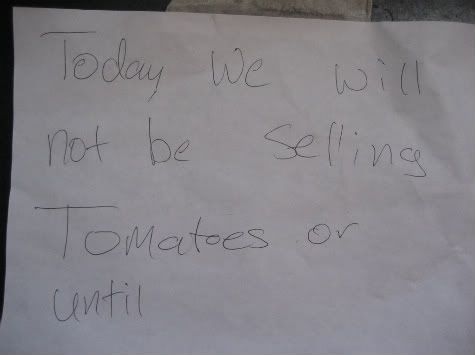 Today We will
not be Selling
Tomatoes or
until